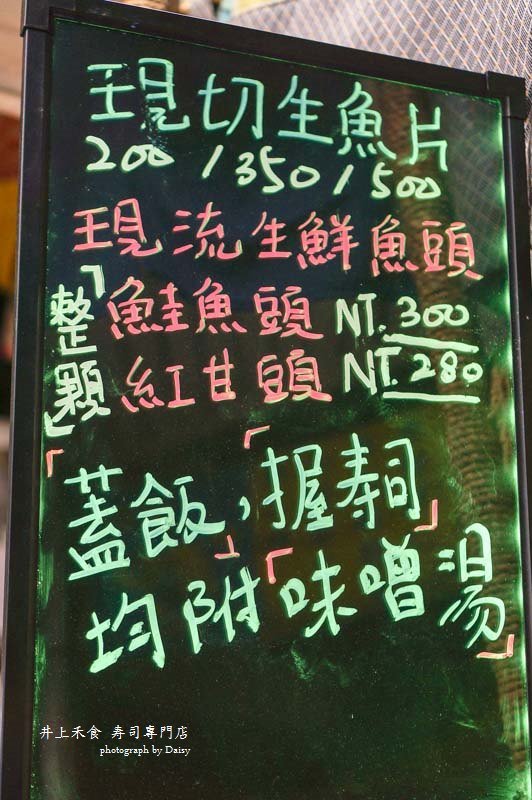 現切生魚片
200 / 350 / 500
現流生鮮魚頭
「整顆」
鮭魚頭 NT. 300
紅甘頭 NT. 280
「蓋飯」,「握壽司」
均附「味噌湯」
井上禾食 寿司専門店
photograph by Daisy